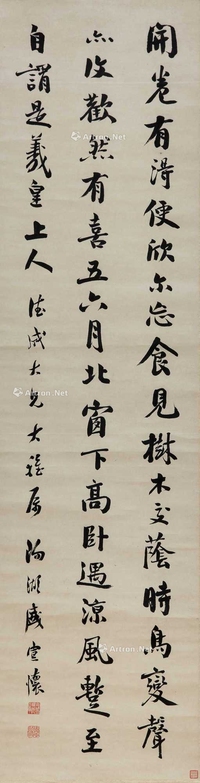 開卷有得便欣尒忘食見樹木交蔭時鳥變聲
亦復歡然有喜五六月北窗下高卧遇涼風蹔至
自謂是羲皇上人 德成大兄大雅屬 陽湖盛宣懷